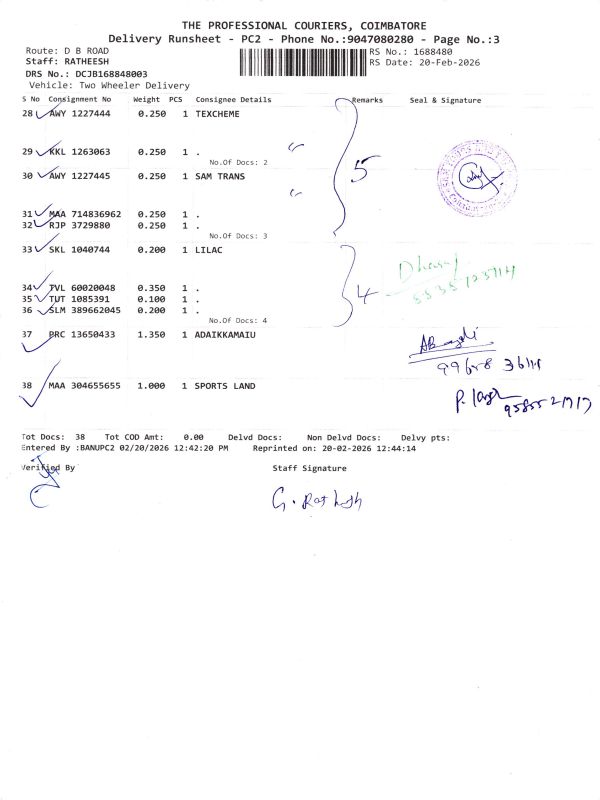 THE PROFESSIONAL COURIERS, COIMBATORE
Delivery Runsheet - PC2 - Phone No.:9047080280 - Page No.:3
Route: D B ROAD RS No.: 1688480
Staff: RATHEESH RS Date: 20-Feb-2026
DRS No.: DCJB168848003
Vehicle: Two Wheeler Delivery
S No Consignment No Weight PCS Consignee Details Remarks Seal & Signature
28 AWY 1227444 0.250 1 TEXCHEME
29 KKL 1263063 0.250 1 .
No.Of Docs: 2
30 AWY 1227445 0.250 1 SAM TRANS
5
31 MAA 714836962 0.250 1 .
32 RJP 3729880 0.250 1 .
No.Of Docs: 3
33 SKL 1040744 0.200 1 LILAC
34 TVL 60020048 0.350 1 .
35 TUT 1085391 0.100 1 .
4
36 SLM 389662045 0.200 1 .
No.Of Docs: 4
37 PRC 13650433 1.350 1 ADAIKKAMAIU
38 MAA 304655655 1.000 1 SPORTS LAND
Tot Docs: 38 Tot COD Amt: 0.00 Delvd Docs: Non Delvd Docs: Delvy pts:
Entered By :BANUPC2 02/20/2026 12:42:20 PM Reprinted on: 20-02-2026 12:44:14
Verified By Staff Signature
G. Rathesh